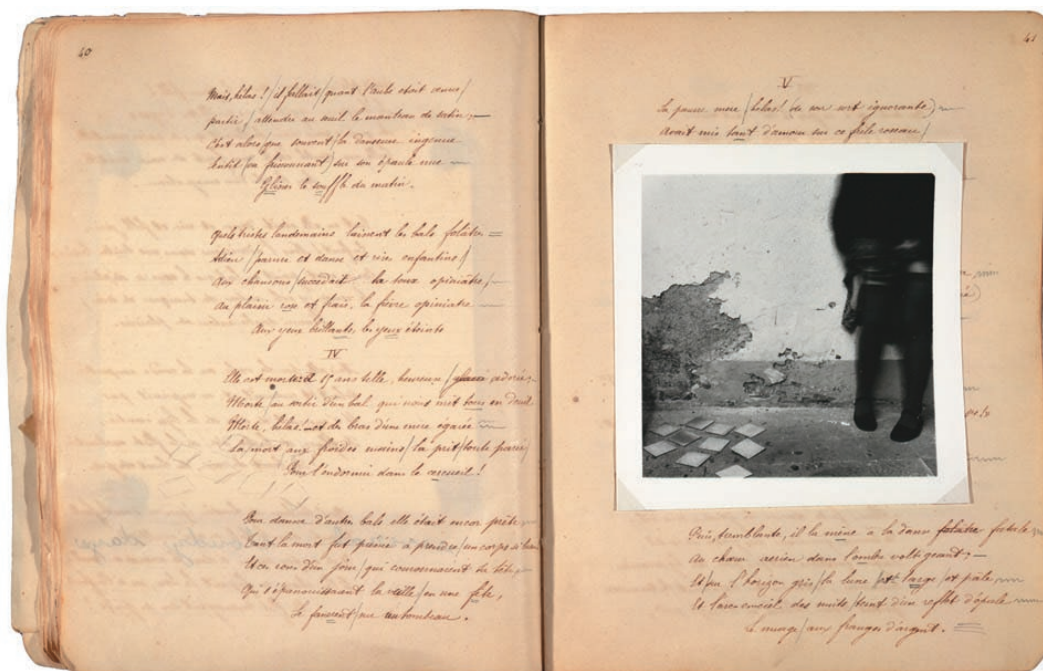 40
Mais, hélas! / il fallait / quant l'aube était venue /
partir / attendre au seuil le manteau de satin; —
C'est alors / que souvent / la danseuse ingénue
Sentit (en frissonnant) sur son épaule nue
Glisser le souffle du matin.
Quels tristes lendemains laissent les bals folâtre
Adieu / parure et danse et rire enfantins /
Aux chansons / succédait la toux opiniâtre /
Au plaisir rose et frais, la fièvre opiniatre
Aux yeux brillants, les yeux éteints
IV
Elle est morte à 15 ans belle, heureuse / adorée;
Morte / au sortir d'un bal qui nous mit tous en deuil
Morte, hélas! des bras d'une mère égarée
La mort aux froides mains / la prit / toute parée /
Pour l'endormir dans le cercueil!
Pour danser d'autre bals elle était encor prête
Tant la mort fut pressée à prendre / un corps si beau
Et ces roses d'un jour / qui couronnaient sa tête
Qui s'épanouissaient la veille / en une fête,
Se fanèrent / au tombeau.
41
V
Sa pauvre mère / hélas! (de son sort ignorante)
Avait mis tant d'amour sur ce frêle roseau /
Puis, tremblante, il la mène à la danse folatre fatale
Au choeur aérien dans l'ombre voltigeant; —
Et sur l'horizon gris / la lune / est large / et pâle
Et l'arc en ciel des nuits / teint d'un reflet d'opale
Le nuage / aux franges d'argent.